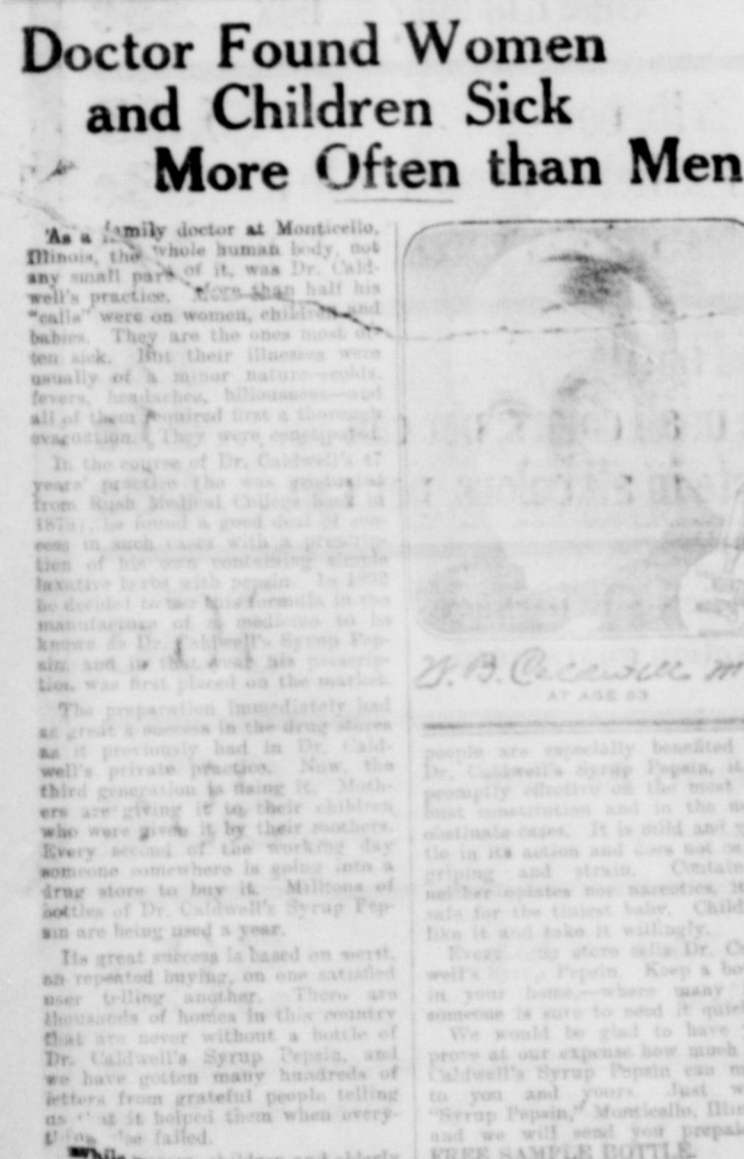 Doctor Found Women
and Children Sick
More Often than Men
As a family doctor at Monticello,
Illinois, the whole human body, not
any small part of it, was Dr. Cald-
well's practice. More than half his
"calls" were on women, children and
babies. They are the ones most of-
ten sick. But their illnesses were
usually of a minor nature—colds,
fevers, headaches, biliousness—and
all of them required first a thorough
evacuation. They were constipated.
In the course of Dr. Caldwell's 47
years' practice (he was graduated
from Rush Medical College back in
1875), he found a good deal of suc-
cess in such cases with a prescrip-
tion of his own containing simple
laxative herbs with pepsin. In
he decided to use this formula in the
manufacture of a medicine to be
known as Dr. Caldwell's Syrup Pep-
sin, and in that year his prescrip-
tion was first placed on the market.
The preparation immediately had
as great a success in the drug stores
as it previously had in Dr. Cald-
well's private practice. Now, the
third generation is using it. Moth-
ers are giving it to their children
who were given it by their mothers.
Every second of the working day
someone somewhere is going into a
drug store to buy it. Millions of
bottles of Dr. Caldwell's Syrup Pep-
sin are being used a year.
Its great success is based on merit,
on repeated buying, on one satisfied
user telling another. There are
thousands of homes in this country
that are never without a bottle of
Dr. Caldwell's Syrup Pepsin, and
we have gotten many hundreds of
letters from grateful people telling
us that it helped them when every-
thing else failed.
While women, children and elderly
W. B. Caldwell M
AT AGE 83
people are especially benefited
Dr. Caldwell's Syrup Pepsin, it
promptly effective on the most
bust constitution and in the
obstinate cases. It is mild and
tle in its action and does not
griping and strain. Contain
neither opiates nor narcotics, it
safe for the tiniest baby. Child
like it and take it willingly.
Every drug store sells Dr. C
well's Syrup Pepsin. Keep a bo
in your home,—where many
someone is sure to need it quic
We would be glad to have
prove at our expense how much
Caldwell's Syrup Pepsin can m
to you and yours. Just w
"Syrup Pepsin," Monticello, Illin
and we will send you prepai
FREE SAMPLE BOTTLE.